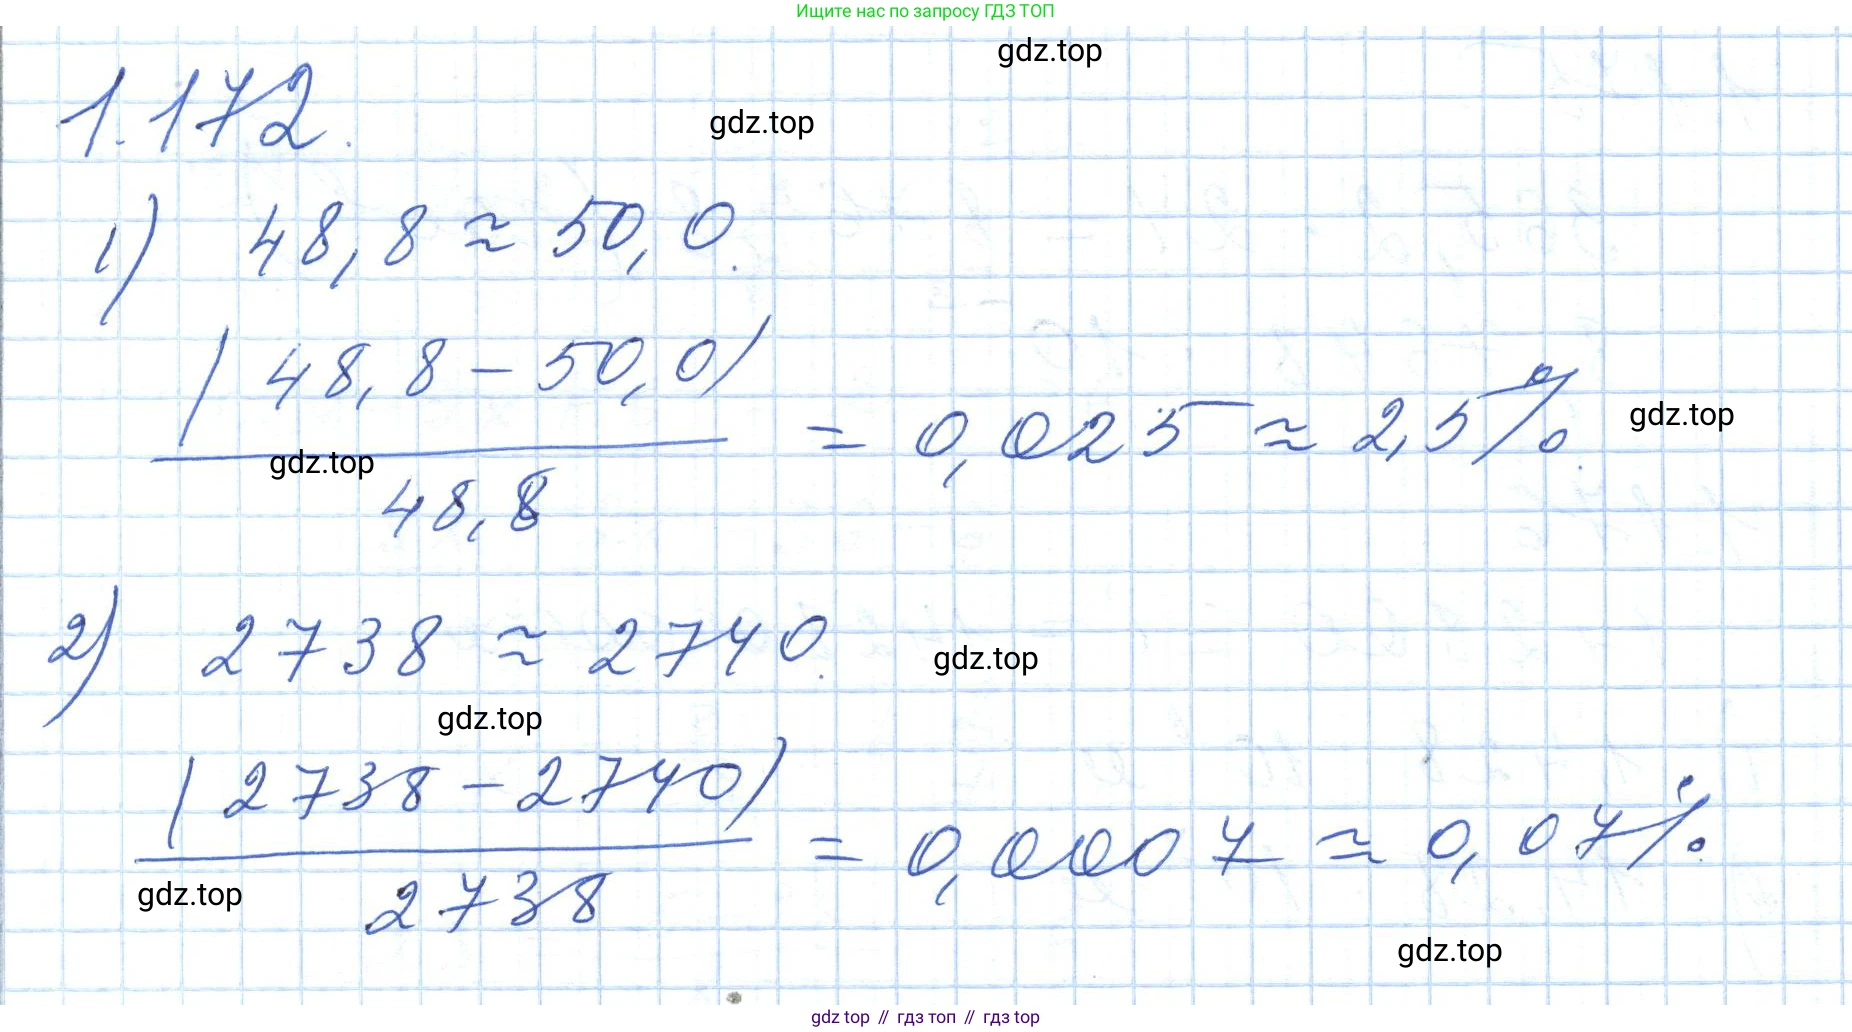 Ищите нас по запросу ГДЗ ТОП
gdz.top
1.172.
gdz.top
1) 48,8 ≈ 50,0.
|48,8 – 50,0|
= 0,025 ≈ 2,5%.
gdz.top
gdz.top
48,8
2) 2738 ≈ 2740.
gdz.top
gdz.top
|2738 – 2740|
= 0,0007 ≈ 0,07%.
2738
gdz.top
gdz.top
gdz.top // гдз топ // гдз.top